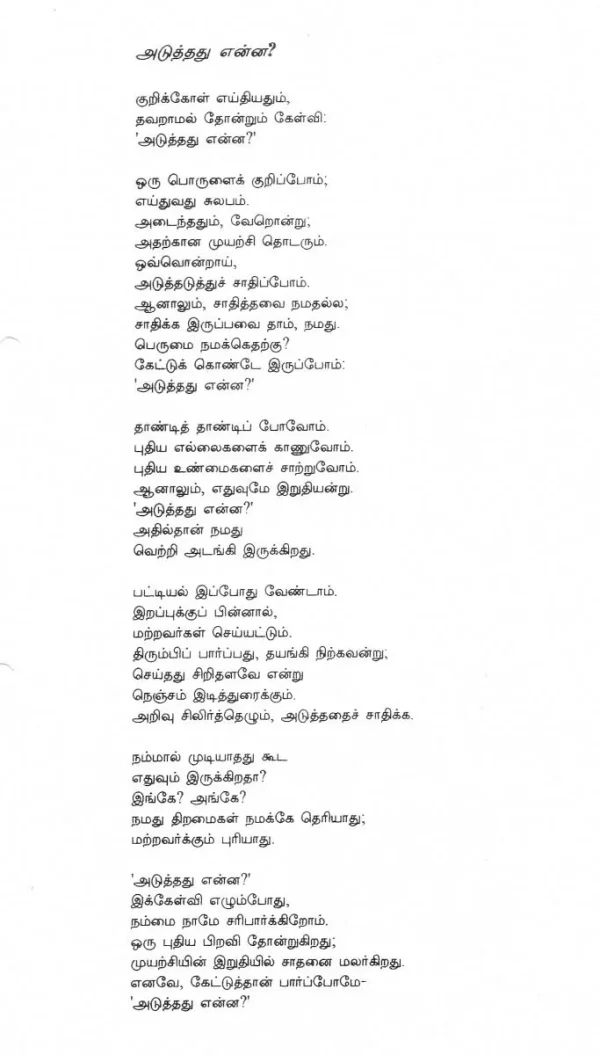 அடுத்தது என்ன?
குறிக்கோள் எய்தியதும்,
தவறாமல் தோன்றும் கேள்வி:
'அடுத்தது என்ன?'
ஒரு பொருளைக் குறிப்போம்;
எய்துவது சுலபம்.
அடைந்ததும், வேறொன்று;
அதற்கான முயற்சி தொடரும்.
ஒவ்வொன்றாய்,
அடுத்தடுத்துச் சாதிப்போம்.
ஆனாலும், சாதித்தவை நமதல்ல;
சாதிக்க இருப்பவை தாம், நமது.
பெருமை நமக்கெதற்கு?
கேட்டுக் கொண்டே இருப்போம்:
'அடுத்தது என்ன?'
தாண்டித் தாண்டிப் போவோம்.
புதிய எல்லைகளைக் காணுவோம்.
புதிய உண்மைகளைச் சாற்றுவோம்.
ஆனாலும், எதுவுமே இறுதியன்று.
'அடுத்தது என்ன?'
அதில்தான் நமது
வெற்றி அடங்கி இருக்கிறது.
பட்டியல் இப்போது வேண்டாம்.
இறப்புக்குப் பின்னால்,
மற்றவர்கள் செய்யட்டும்.
திரும்பிப் பார்ப்பது, தயங்கி நிற்கவன்று;
செய்தது சிறிதளவே என்று
நெஞ்சம் இடித்துரைக்கும்.
அறிவு சிலிர்த்தெழும், அடுத்ததைச் சாதிக்க.
நம்மால் முடியாதது கூட
எதுவும் இருக்கிறதா?
இங்கே? அங்கே?
நமது திறமைகள் நமக்கே தெரியாது;
மற்றவர்க்கும் புரியாது.
'அடுத்தது என்ன?'
இக்கேள்வி எழும்போது,
நம்மை நாமே சரிபார்க்கிறோம்.
ஒரு புதிய பிறவி தோன்றுகிறது;
முயற்சியின் இறுதியில் சாதனை மலர்கிறது.
எனவே, கேட்டுத்தான் பார்ப்போமே-
'அடுத்தது என்ன?'